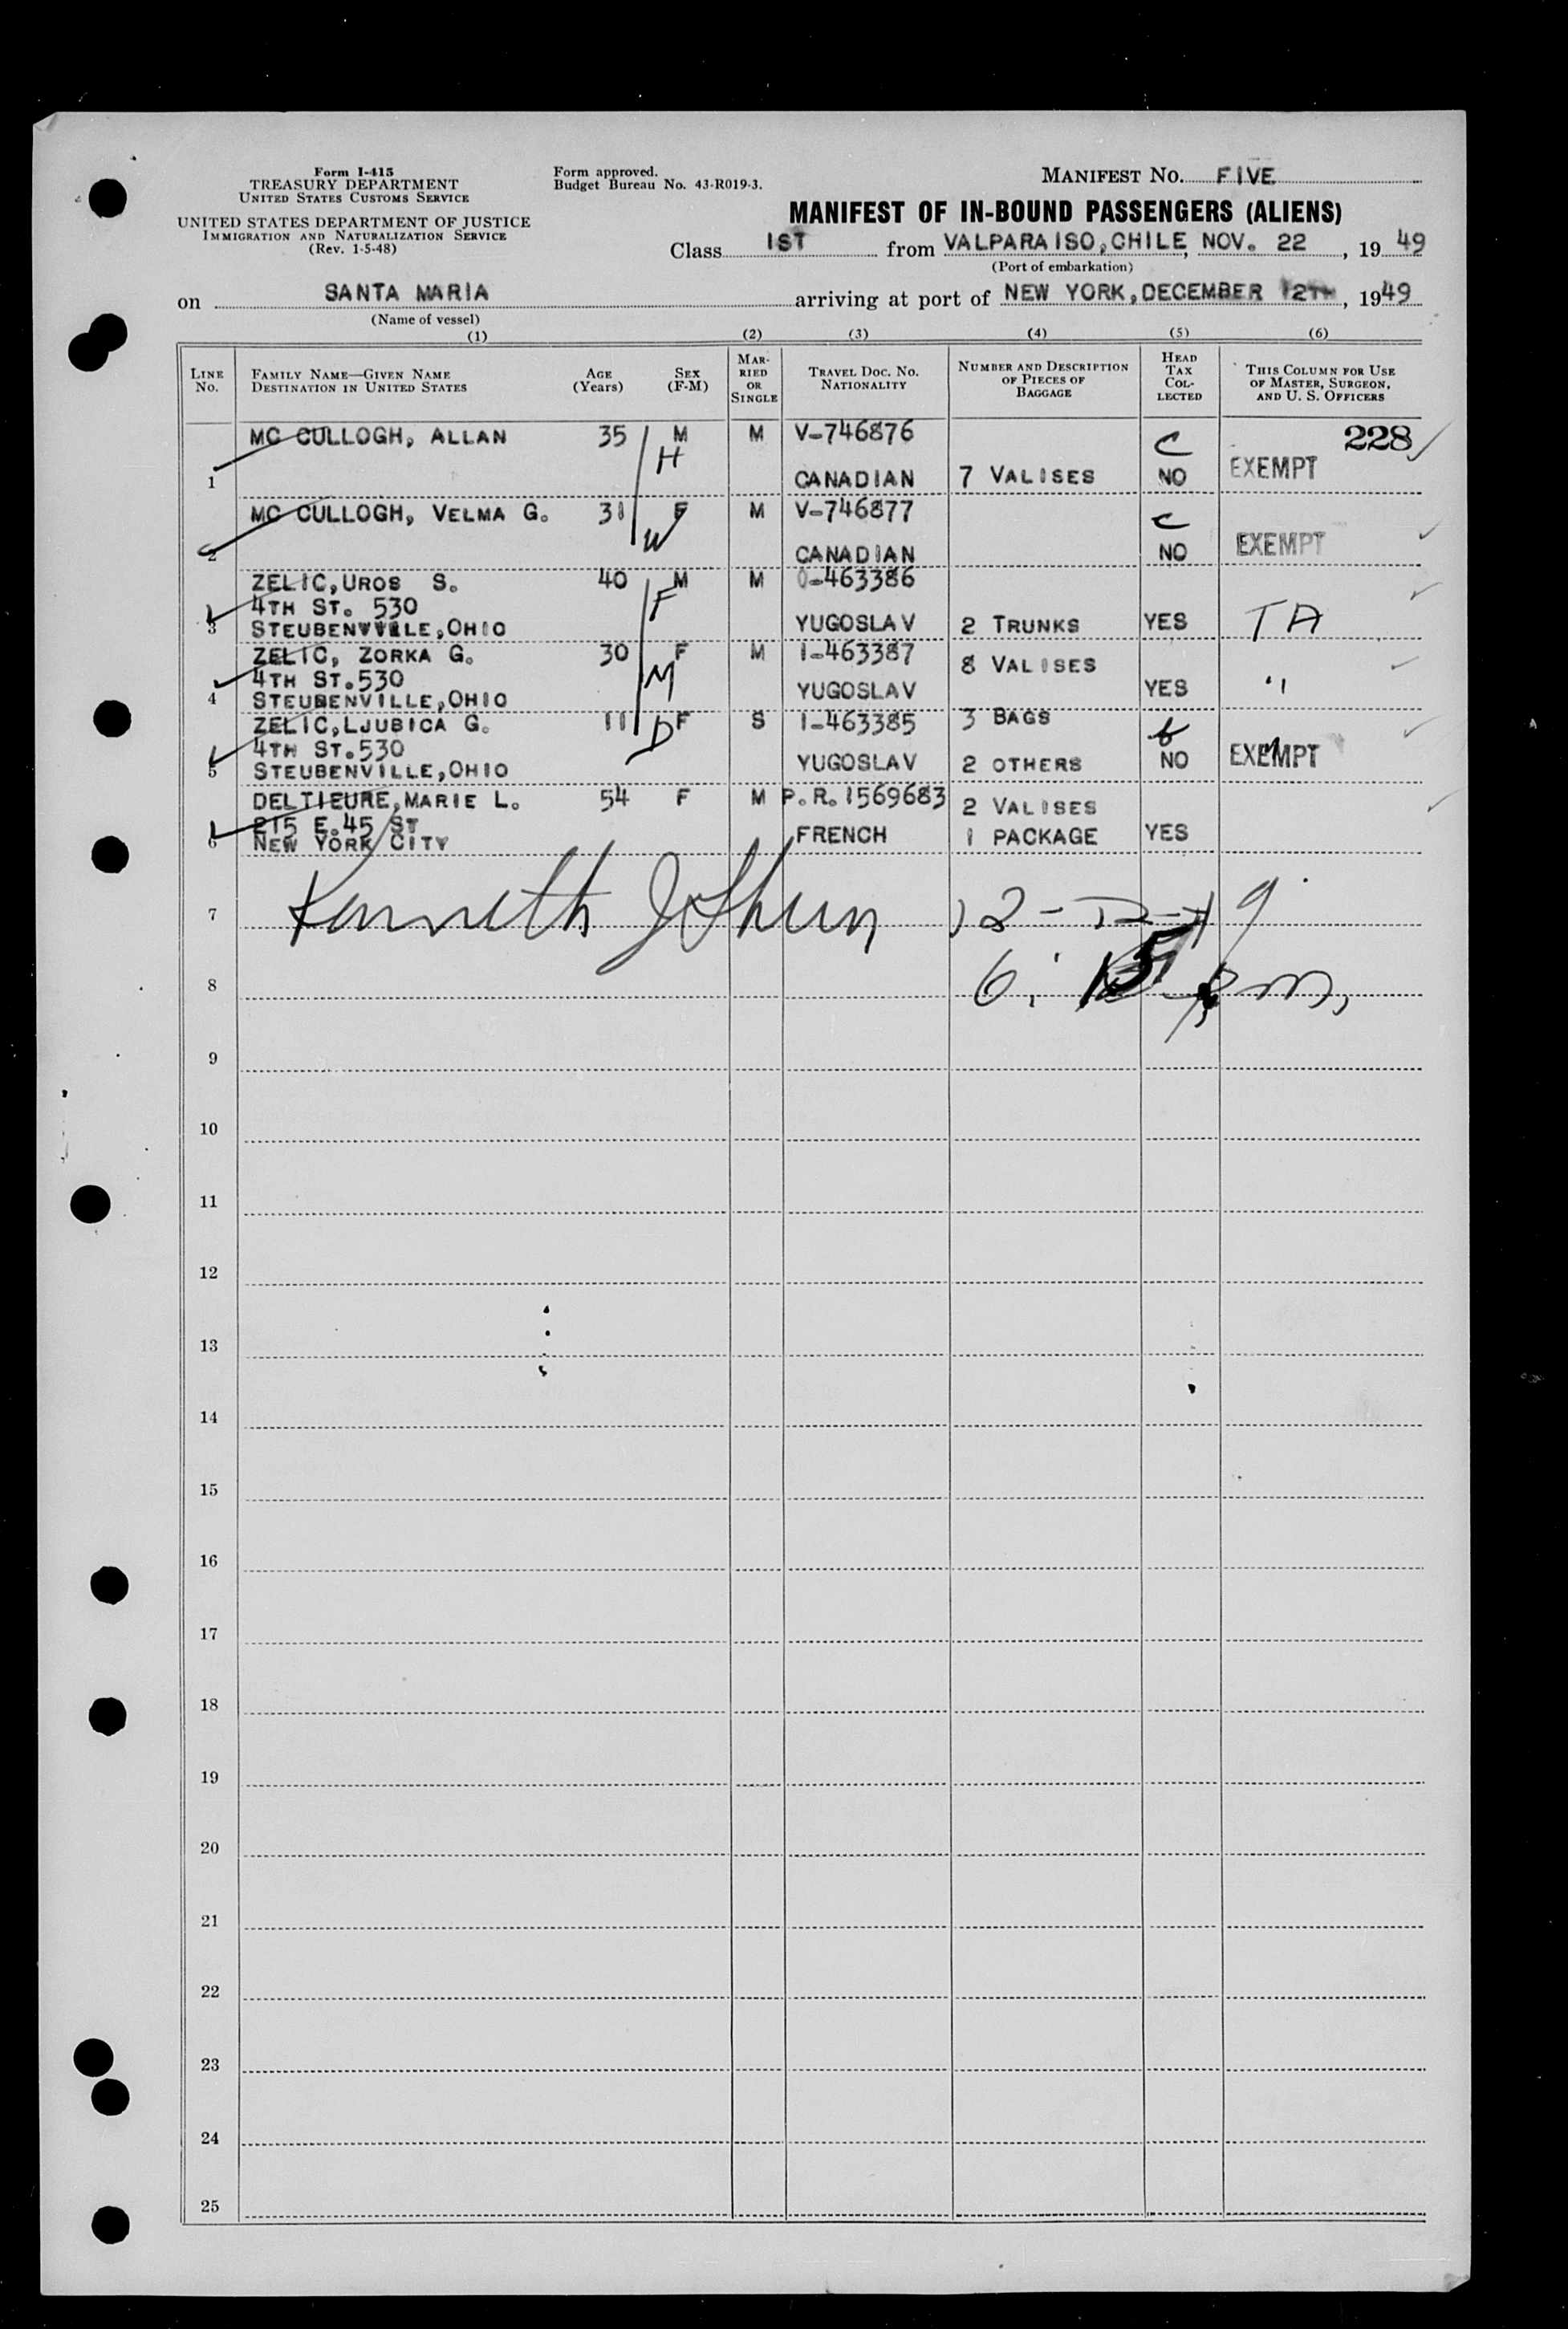 Form I-415
TREASURY DEPARTMENT
UNITED STATES CUSTOMS SERVICE
UNITED STATES DEPARTMENT OF JUSTICE
IMMIGRATION AND NATURALIZATION SERVICE
(Rev. 1-5-48)
Form approved.
Budget Bureau No. 43-R019-3.
MANIFEST NO. FIVE
MANIFEST OF IN-BOUND PASSENGERS (ALIENS)
Class 1ST from VALPARAISO, CHILE, NOV. 22, 1949
(Port of embarkation)
on SANTA MARIA arriving at port of NEW YORK, DECEMBER 12TH, 1949
(Name of vessel)
(1) (2) (3) (4) (5) (6)
LINE NO.
FAMILY NAME—GIVEN NAME
DESTINATION IN UNITED STATES
AGE (Years)
SEX (F-M)
MARRIED OR SINGLE
TRAVEL DOC. NO.
NATIONALITY
NUMBER AND DESCRIPTION OF PIECES OF BAGGAGE
HEAD TAX COLLECTED
THIS COLUMN FOR USE OF MASTER, SURGEON, AND U. S. OFFICERS
MC CULLOGH, ALLAN 35 M M V-746876 C 228
H
1 CANADIAN 7 VALISES NO EXEMPT
MC CULLOGH, VELMA G. 31 F M V-746877 C
W
2 CANADIAN NO EXEMPT
ZELIC, UROS S. 40 M M -463386
4TH ST. 530 F
3 STEUBENVILLE, OHIO YUGOSLAV 2 TRUNKS YES TA
ZELIC, ZORKA G. 30 F M I-463387 8 VALISES
4TH ST. 530 M
4 STEUBENVILLE, OHIO YUGOSLAV YES "
ZELIC, LJUBICA G. 11 F S I-463385 3 BAGS
4TH ST. 530 D
5 STEUBENVILLE, OHIO YUGOSLAV 2 OTHERS NO EXEMPT
DELTIEURE, MARIE L. 54 F M P.R. 1569683 2 VALISES
215 E. 45 ST
6 NEW YORK CITY FRENCH 1 PACKAGE YES
7 Kenneth 12-12-49
8 6:15 p.m.
9
10
11
12
13
14
15
16
17
18
19
20
21
22
23
24
25